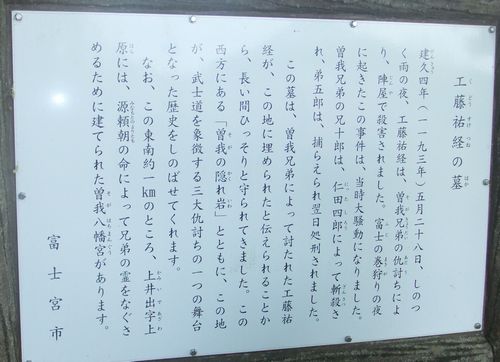 工藤祐経の墓
くどうすけつね はか
建久四年（一一九三年）五月二十八日、しのつ
く雨の夜、工藤祐経は、曽我兄弟の仇討ちによ
り、陣屋で殺害されました。富士の巻狩りの夜
に起きたこの事件は、当時大騒動になりました。
曽我兄弟の兄十郎は、仁田四郎によって斬殺さ
れ、弟五郎は、捕らえられ翌日処刑されました。
この墓は、曽我兄弟によって討たれた工藤祐
経が、この地に埋められたと伝えられることか
ら、長い間ひっそりと守られてきました。この
西方にある「曽我の隠れ岩」とともに、この地
が、武士道を象徴する三大仇討ちの一つの舞台
となった歴史をしのばせてくれます。
なお、この東南約一kmのところ、上井出字上
原には、源頼朝の命によって兄弟の霊をなぐさ
めるために建てられた曽我八幡宮があります。
富士宮市